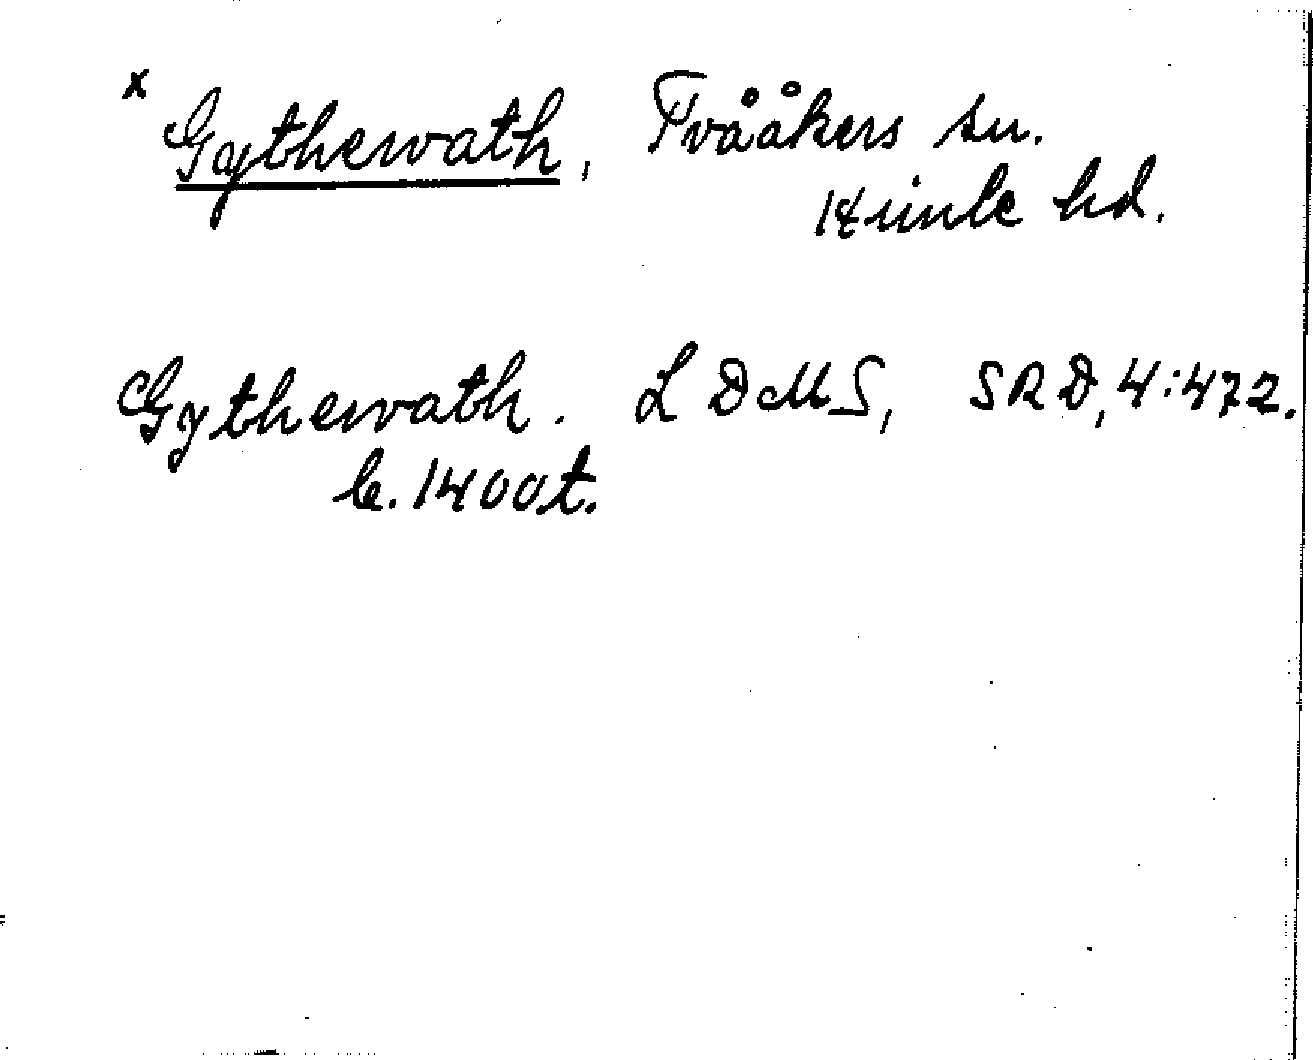 x Gythewath, Tvååkers sn.
Himle hd.
Gythewath. LDMS, SRD, 4:472.
b. 1400t.